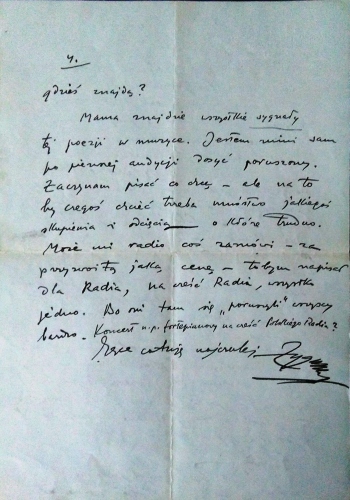 4.
gdzieś znajdą?
Mama znajdzie wszystkie sygnały
tej poezji w muzyce. Jestem nimi sam
po pierwszej audycji dosyć poruszony.
Zaczynam pisać co chcę – ale na to
by czegoś chcieć trzeba mnóstwo jakiegoś
skupienia i odcięcia – o które trudno.
Może mi radio coś zamówi – za
przyzwoitą jakąś cenę – to bym napisał
dla Radia, na cześć Radia, wszystko
jedno. Bo oni tam się „poruszyli" wszyscy
bardzo. Koncert n.p. fortepianowy na cześć Polskiego Radia?
Ręce całuję najczulej Zygmunt